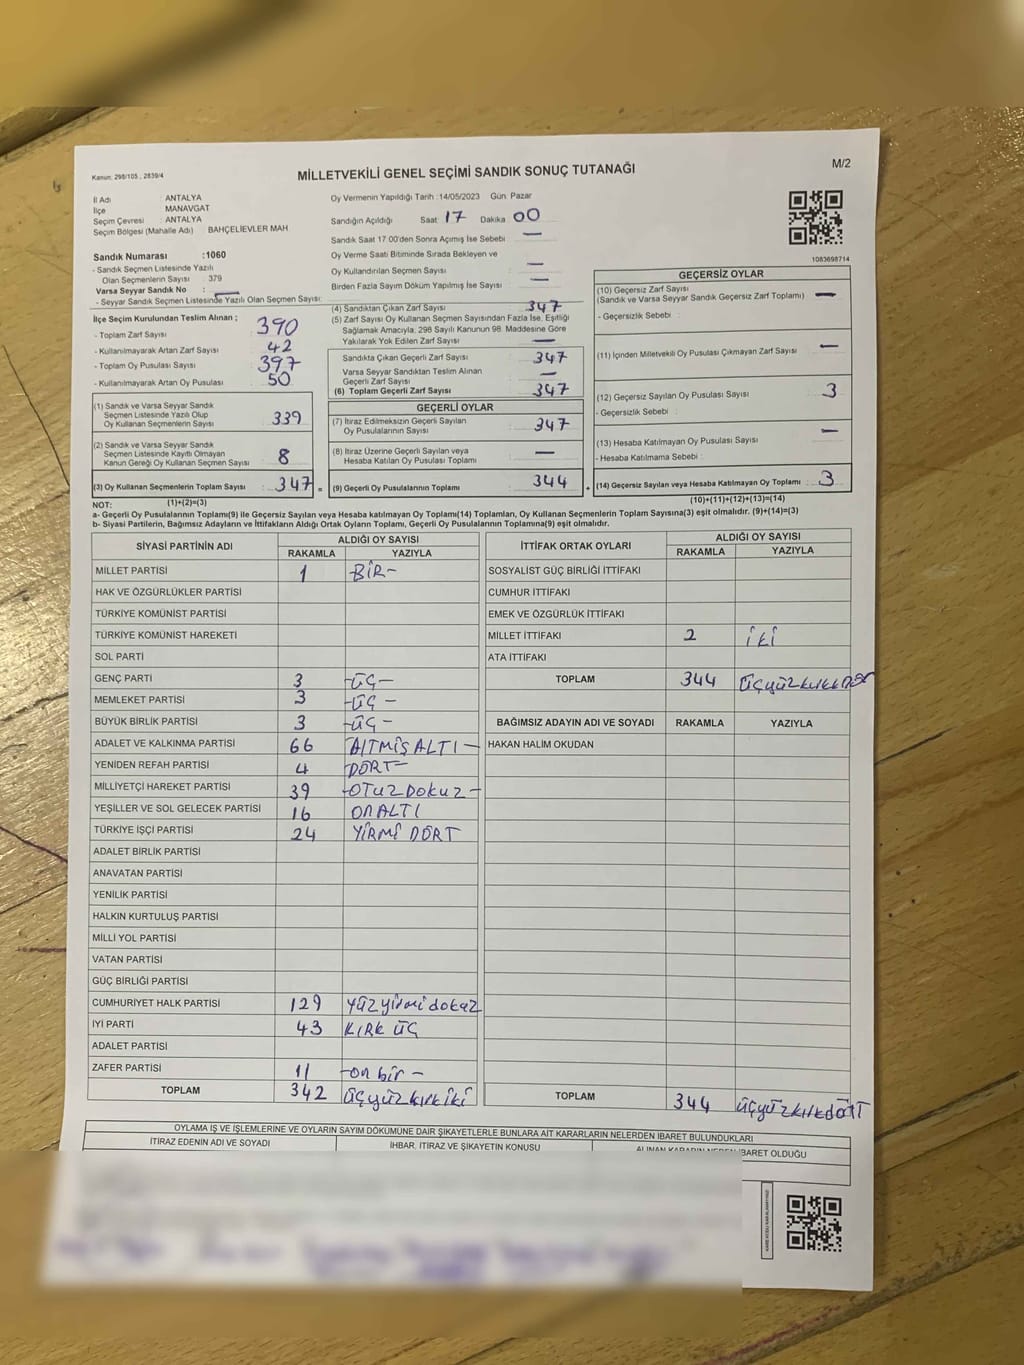 Kanun: 298/105 , 2839/4
MİLLETVEKİLİ GENEL SEÇİMİ SANDIK SONUÇ TUTANAĞI
M/2
İl Adı : ANTALYA
İlçe : MANAVGAT
Seçim Çevresi : ANTALYA
Seçim Bölgesi (Mahalle Adı) BAHÇELİEVLER MAH.
Sandık Numarası :1060
- Sandık Seçmen Listesinde Yazılı
Olan Seçmenlerin Sayısı : 379
Varsa Seyyar Sandık No : —
- Seyyar Sandık Seçmen Listesinde Yazılı Olan Seçmen Sayısı:
Oy Vermenin Yapıldığı Tarih :14/05/2023 Gün: Pazar
Sandığın Açıldığı Saat 17 Dakika 00
Sandık Saat 17:00'den Sonra Açımış İse Sebebi —
Oy Verme Saati Bitiminde Sırada Bekleyen ve
Oy Kullandırılan Seçmen Sayısı —
Birden Fazla Sayım Döküm Yapılmış İse Sayısı —
1083698714
İlçe Seçim Kurulundan Teslim Alınan ;
- Toplam Zarf Sayısı 390
- Kullanılmayarak Artan Zarf Sayısı 42
- Toplam Oy Pusulası Sayısı 397
- Kullanılmayarak Artan Oy Pusulası 50
(1) Sandık ve Varsa Seyyar Sandık
Seçmen Listesinde Yazılı Olup
Oy Kullanan Seçmen Sayısı : 339
(2) Sandık ve Varsa Seyyar Sandık
Seçmen Listesinde Kayıtlı Olmayan
Kanun Gereği Oy Kullanan Seçmen Sayısı : 8
(3) Oy Kullanan Seçmenlerin Toplam Sayısı : 347 =
(1)+(2)=(3)
(4) Sandıktan Çıkan Zarf Sayısı 347
(5) Zarf Sayısı Oy Kullanan Seçmen Sayısından Fazla İse, Eşitliği
Sağlamak Amacıyla; 298 Sayılı Kanunun 98. Maddesine Göre
Yakılarak Yok Edilen Zarf Sayısı —
Sandıkta Çıkan Geçerli Zarf Sayısı 347
Varsa Seyyar Sandıktan Teslim Alınan
Geçerli Zarf Sayısı —
(6) Toplam Geçerli Zarf Sayısı 347
GEÇERLİ OYLAR
(7) İtiraz Edilmeksizin Geçerli Sayılan
Oy Pusulalarının Sayısı : 347
(8) İtiraz Üzerine Geçerli Sayılan veya
Hesaba Katılan Oy Pusulası Toplamı : —
(9) Geçerli Oy Pusulalarının Toplamı : 344 +
GEÇERSİZ OYLAR
(10) Geçersiz Zarf Sayısı
(Sandık ve Varsa Seyyar Sandık Geçersiz Zarf Toplamı) : —
- Geçersizlik Sebebi :
(11) İçinden Milletvekili Oy Pusulası Çıkmayan Zarf Sayısı : —
(12) Geçersiz Sayılan Oy Pusulası Sayısı : 3
- Geçersizlik Sebebi :
(13) Hesaba Katılmayan Oy Pusulası Sayısı : —
- Hesaba Katılmama Sebebi :
(14) Geçersiz Sayılan veya Hesaba Katılmayan Oy Toplamı : 3
(10)+(11)+(12)+(13)=(14)
NOT:
a- Geçerli Oy Pusulalarının Toplamı(9) ile Geçersiz Sayılan veya Hesaba katılmayan Oy Toplamı(14) Toplamları, Oy Kullanan Seçmenlerin Toplam Sayısına(3) eşit olmalıdır. (9)+(14)=(3)
b- Siyasi Partilerin, Bağımsız Adayların ve İttifakların Aldığı Ortak Oyların Toplamı, Geçerli Oy Pusulalarının Toplamına(9) eşit olmalıdır.
SİYASİ PARTİNİN ADI ALDIĞI OY SAYISI
RAKAMLA YAZIYLA
MİLLET PARTİSİ 1 BİR-
HAK VE ÖZGÜRLÜKLER PARTİSİ
TÜRKİYE KOMÜNİST PARTİSİ
TÜRKİYE KOMÜNİST HAREKETİ
SOL PARTİ
GENÇ PARTİ 3 -ÜÇ-
MEMLEKET PARTİSİ 3 -ÜÇ-
BÜYÜK BİRLİK PARTİSİ 3 -ÜÇ-
ADALET VE KALKINMA PARTİSİ 66 ALTMIŞ ALTI -
YENİDEN REFAH PARTİSİ 4 DÖRT-
MİLLİYETÇİ HAREKET PARTİSİ 39 -OTUZ DOKUZ-
YEŞİLLER VE SOL GELECEK PARTİSİ 16 ONALTI
TÜRKİYE İŞÇİ PARTİSİ 24 YİRMİ DÖRT
ADALET BİRLİK PARTİSİ
ANAVATAN PARTİSİ
YENİLİK PARTİSİ
HALKIN KURTULUŞ PARTİSİ
MİLLİ YOL PARTİSİ
VATAN PARTİSİ
GÜÇ BİRLİĞİ PARTİSİ
CUMHURİYET HALK PARTİSİ 129 yüz yirmi dokuz
İYİ PARTİ 43 KIRK ÜÇ
ADALET PARTİSİ
ZAFER PARTİSİ 11 -on bir-
TOPLAM 342 üçyüzkırkiki
İTTİFAK ORTAK OYLARI ALDIĞI OY SAYISI
RAKAMLA YAZIYLA
SOSYALİST GÜÇ BİRLİĞİ İTTİFAKI
CUMHUR İTTİFAKI
EMEK VE ÖZGÜRLÜK İTTİFAKI
MİLLET İTTİFAKI 2 İKİ
ATA İTTİFAKI
TOPLAM 344
BAĞIMSIZ ADAYIN ADI VE SOYADI RAKAMLA YAZIYLA
HAKAN HALİM OKUDAN
TOPLAM 344 üçyüzkırkdört
OYLAMA İŞ VE İŞLEMLERİNE VE OYLARIN SAYIM DÖKÜMÜNE DAİR ŞİKAYETLERLE BUNLARA AİT KARARLARIN NELERDEN İBARET BULUNDUKLARI
İTİRAZ EDENİN ADI VE SOYADI İHBAR, İTİRAZ VE ŞİKAYETİN KONUSU ALINAN KARARIN NEDEN İBARET OLDUĞU